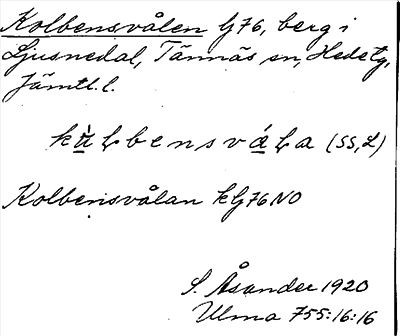 Kolbensvålen G76, berg i
Ljusnedal, Tännäs sn, Hede tg,
Jämtl. l.
(SS, L)
Kolbensvålan kG76NO
S. Åsander 1920
Ulma 755:16:16